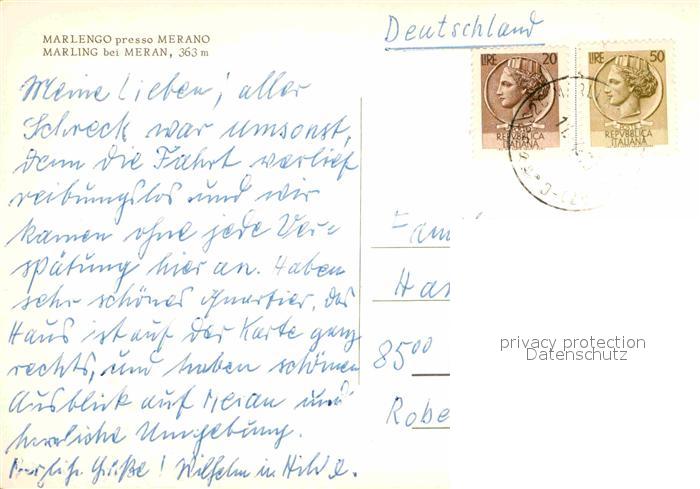 MARLENGO presso MERANO
MARLING bei MERAN, 363 m
Deutschland
LIRE 20
LIRE 50
POSTE
REPVBBLICA
ITALIANA
REPVBBLICA
ITALIANA
Meine Lieben, aller
Schreck war umsonst,
denn die Fahrt verlief
reibungslos und wir
kamen ohne jede Ver-
spätung hier an. Haben
sehr schönes Quartier, das
Haus ist auf der Karte ganz
rechts, und haben schönen
Ausblick auf Meran und
herrliche Umgebung.
Herzliche Grüße! Wilhelm
Fami
Has
8500
Robe
privacy protection
Datenschutz